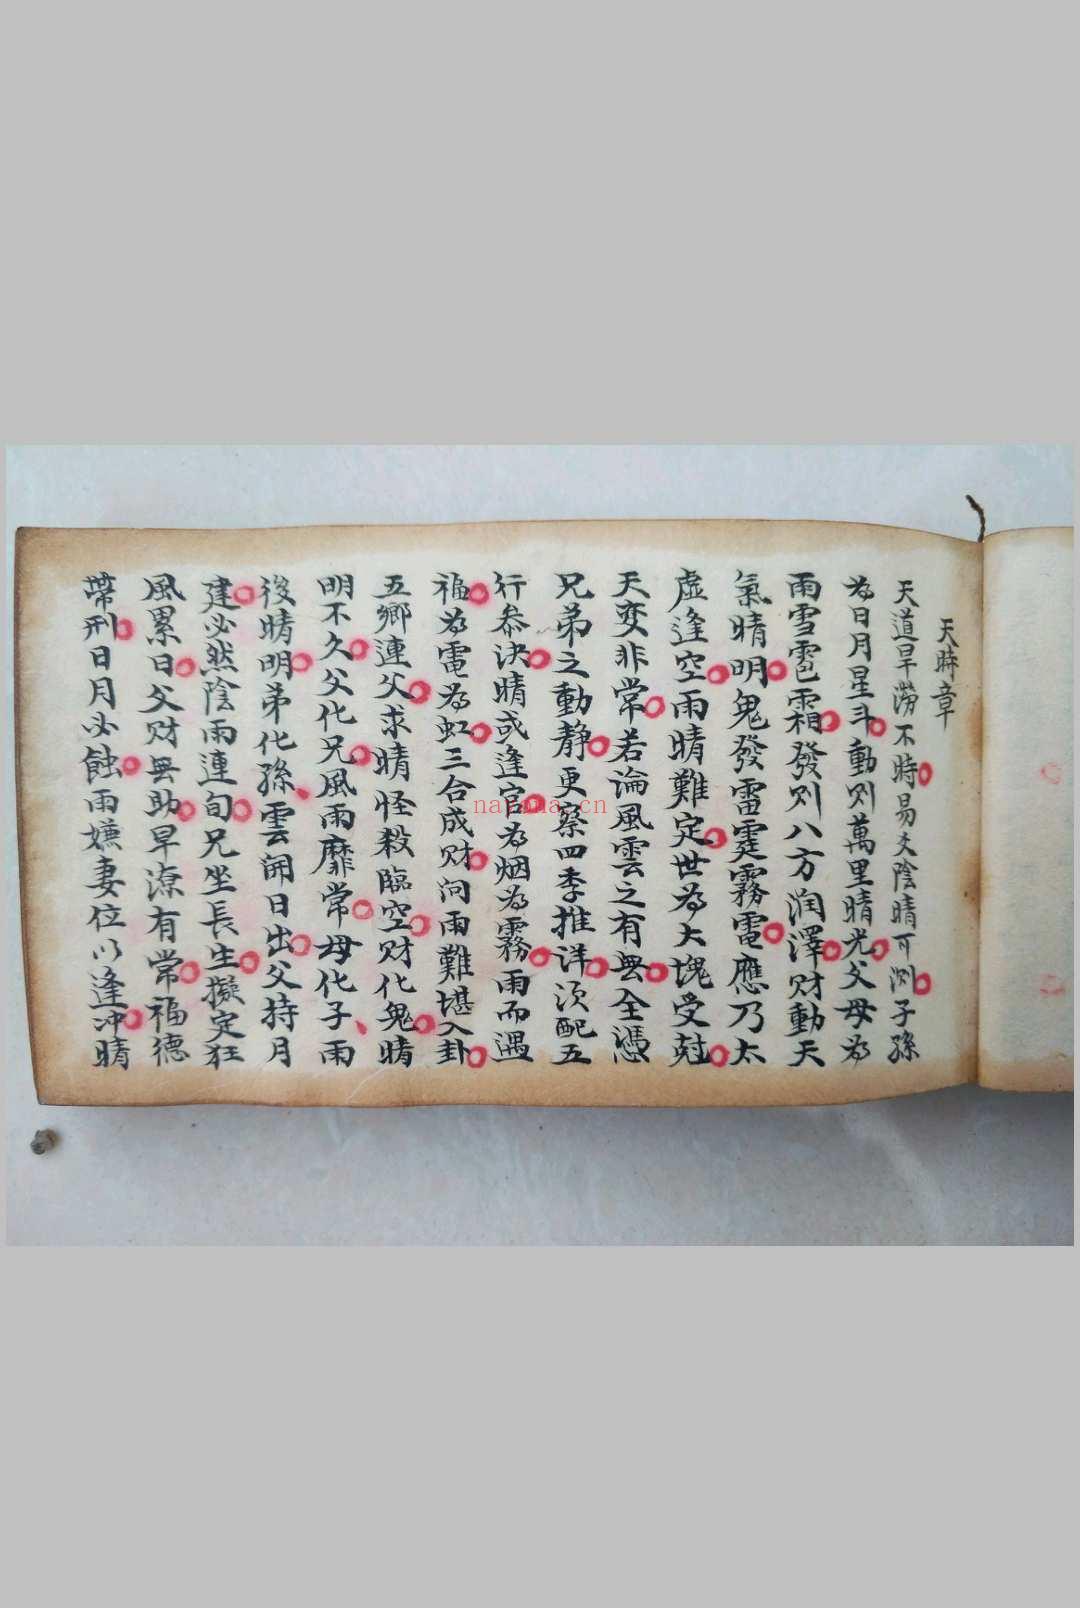 天時章
天道旱澇不時易爻陰晴可測子孫
為日月星斗動則萬里晴光父母為
雨雪雹霜發則八方潤澤財動天
氣晴明鬼發雷霆霧電應乃太
虛逢空雨晴難定世為大塊受尅
天变非常若淪風雲之有無全憑
兄弟之動靜更察四季推详須配五
行叅決晴或逢官為烟為霧雨而遇
福為電為虹三合成财问雨難堪入卦
五鄉連父求晴怪殺臨空财化鬼晴
明不久父化兄風雨靡常母化子雨
後晴明弟化孫雲開日出父持月
建必然陰雨連旬兄坐長生擬定狂
風累日父财無助旱潦有常福德
帶刑日月必蝕雨嫌妻位以逢冲晴
nayona.cn